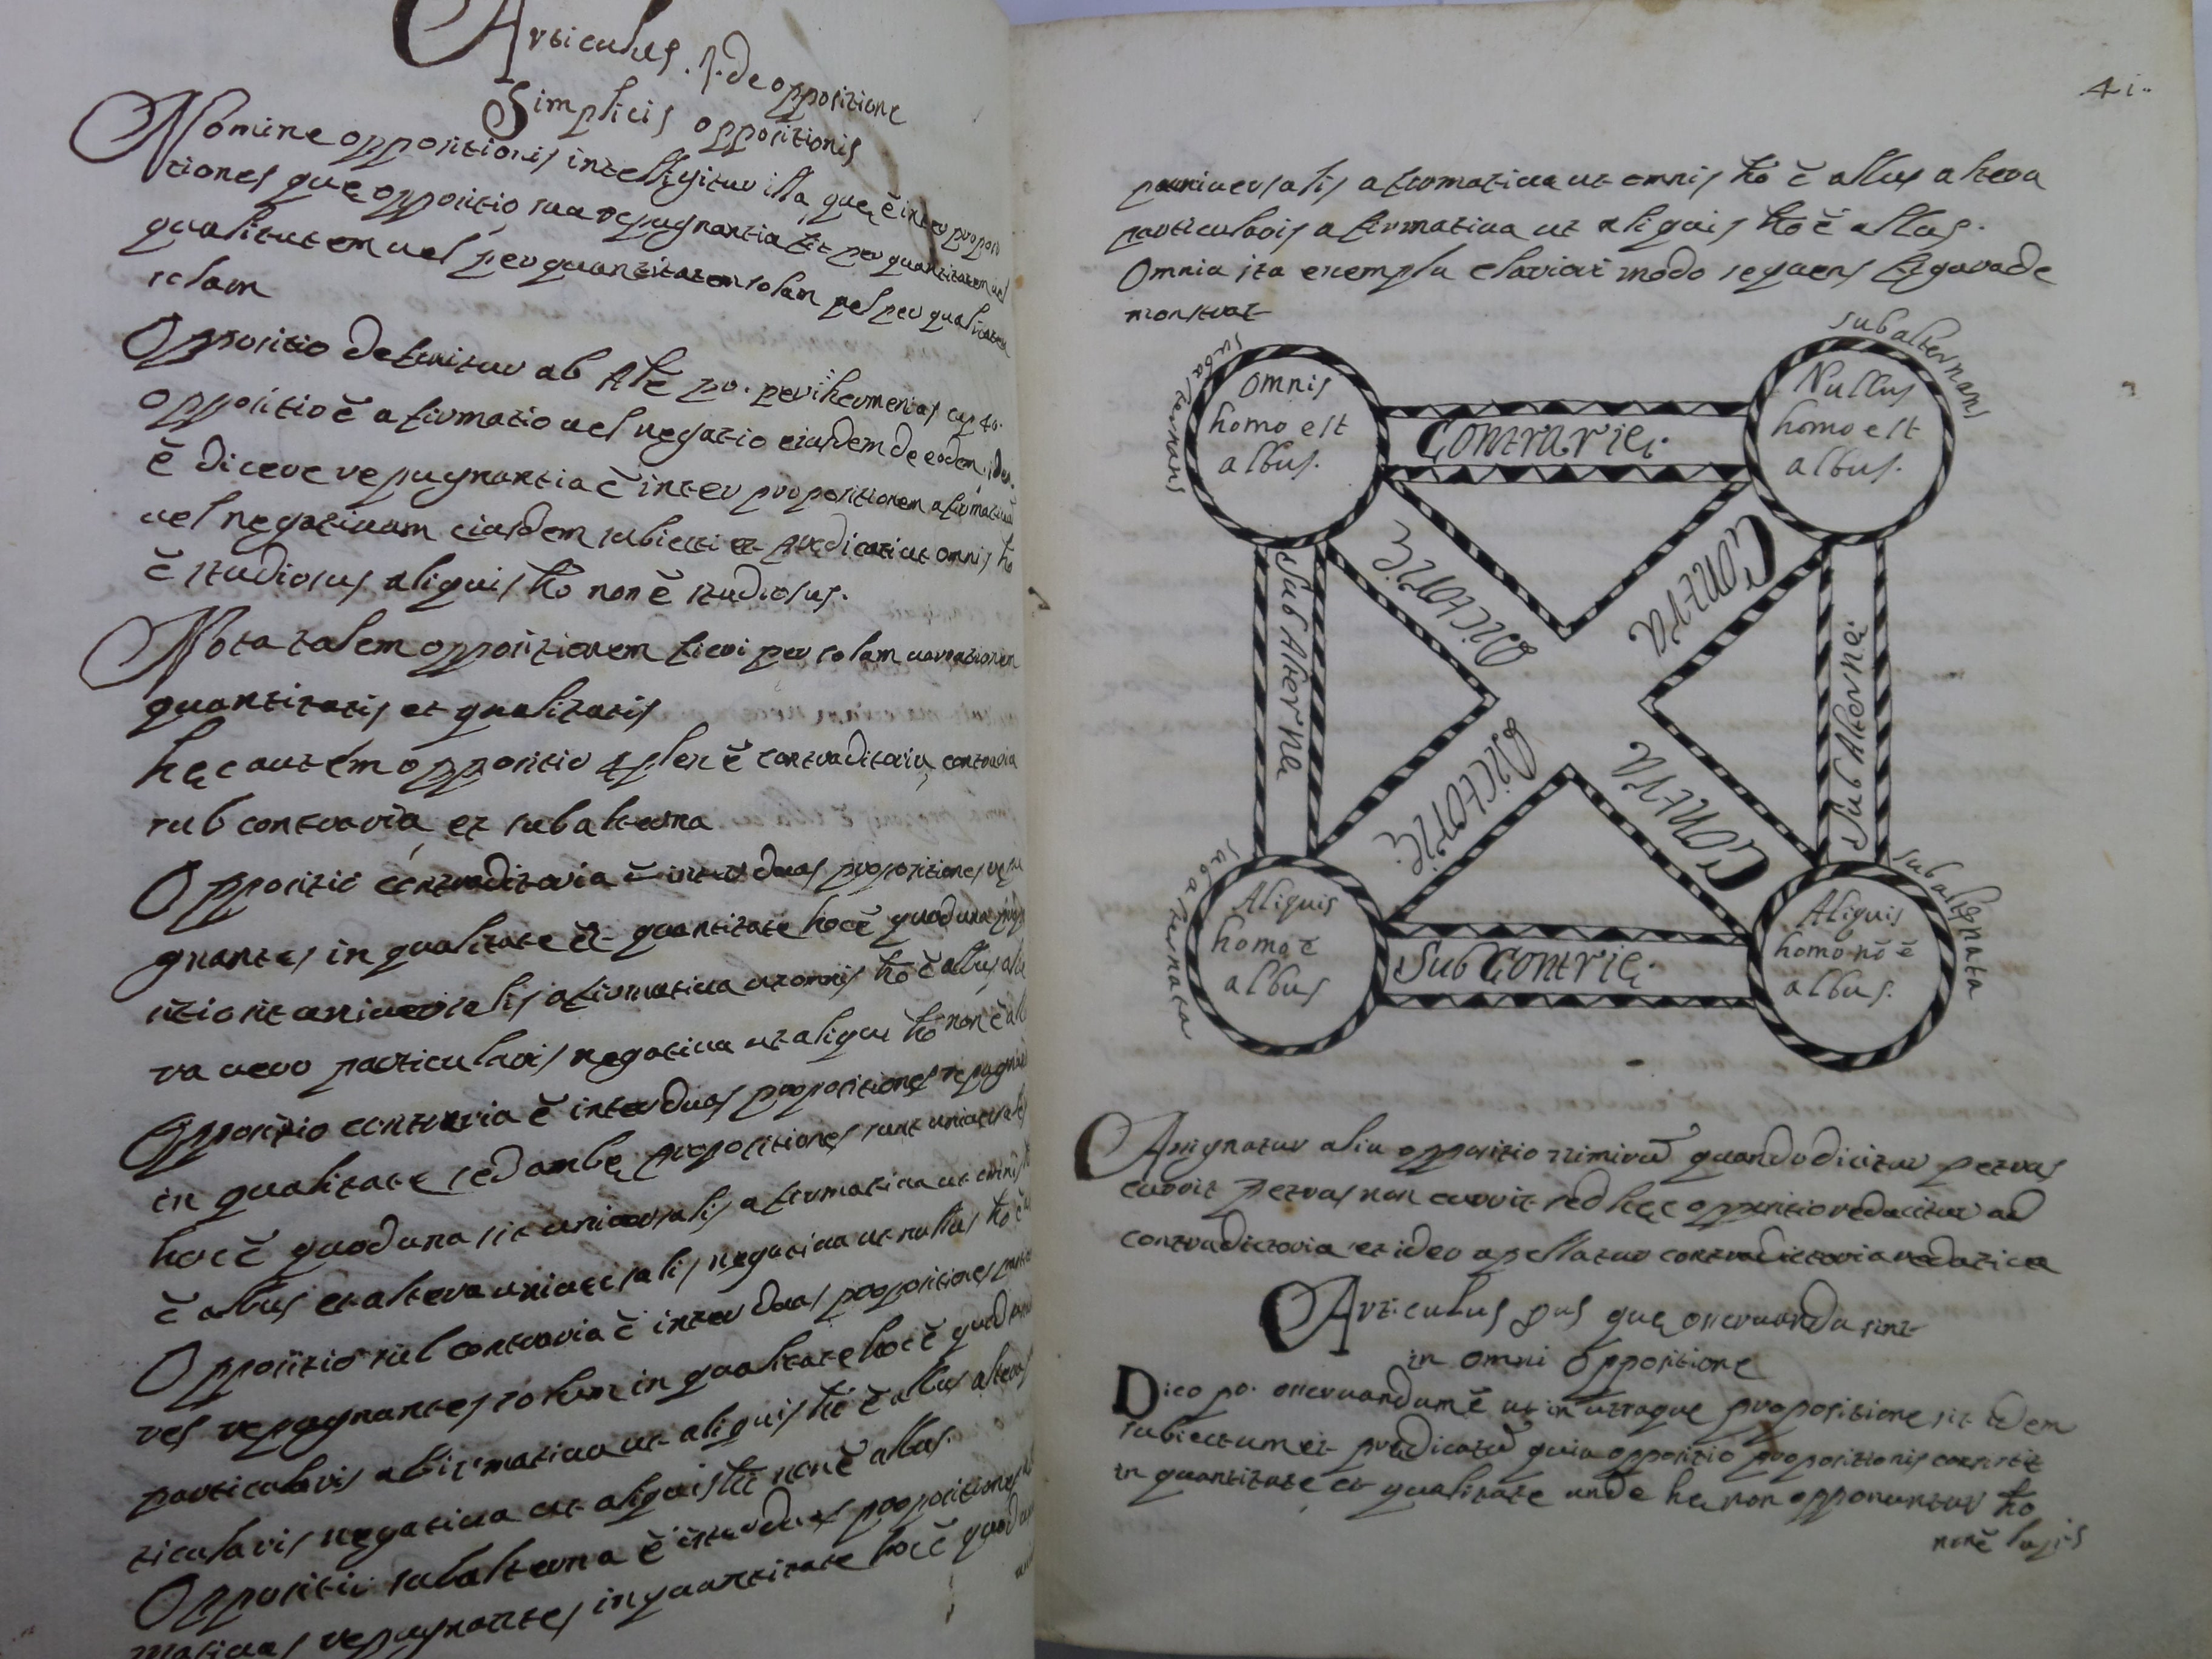 Articulus . p. de oppositione
Simplicis oppositionis
Nomine oppositionis intelligitur illa quę ĕ inter proposi
tiones quę oppositio sua repugnantia fit per quantitatem vel
qualitatem uel per quantitatem solam vel per qualitatem
solam
Oppositio definitur ab Ale po. perihermenias cap 40.
oppositio ĕ afirmatio uel negatio eiusdem de eodem, idest
ĕ dicere repugnantia ĕ inter propositionem afirmatiuā
uel negatiuam eiusdem subiecti et prędicati ut omnis ho
ĕ studiosus aliquis ho non ĕ studiosus.
Nota talem oppositionem fieri per solam uariationem
quantitatis et qualitatis
hęc autem oppositio 4plex ĕ contraditoria, contraria
sub contraria et subalterna
Oppositio contraditoria ĕ inter duas propositiones repu
gnantes in qualitate et quantitate hoc ĕ quod una propo
sitio sit uniuersalis afirmatiua ut omnis ho ĕ albus alte
ra uero particularis negatiua ut aliquis ho non ĕ
Oppositio contraria ĕ inter duas propositiones repugnan
in qualitate sed ambę propositiones sunt uniuersales
hoc ĕ quod una sit uniuersalis afirmatiua ut omnis
ĕ albus et altera uniuersalis negatiua ut nullus ho ĕ
Oppositio sub contraria ĕ inter duas propositiones
res repugnantes solum in qualitate hoc ĕ quod
particularis afirmatiua ut aliquis ho ĕ albus altera
ticularis negatiua ut aliquis ho non ĕ albus.
Oppositio subalterna ĕ inter duas propositiones
repugnantes in quantitate hoc ĕ quod
4i..
uniuersalis afirmatiua ut omnis ho ĕ albus altera
particularis afirmatiua ut aliquis ho ĕ albus.
Omnia ista exempla clariori modo sequens figura de
monstrat
subalternans
subalternans
Omnis
homo est
albus.
Contrarię.
Nullus
homo est
albus.
Contra
dictorię
Contra
dictorię.
Sub Alternę
Sub Alternę.
subalternata
subalternata
Aliquis
homo ĕ
albus
Sub Contrię.
Aliquis
homo nō ĕ
albus.
Asignatur alia oppositio nimirū quando dicitur petrus
currit petrus non currit sed hęc oppositio reducitur ad
contradictoria et ideo apellatur contradictoria reductiua
Articulus 2us quę obseruanda sint
in omni Oppositione
Dico po. obseruandum ĕ ut in utraque propositione sit idem
subiectum et prędicatū quia oppositio propositionis consistit
in quantitate et qualitate unde hę non opponuntur ho
non ĕ lapis